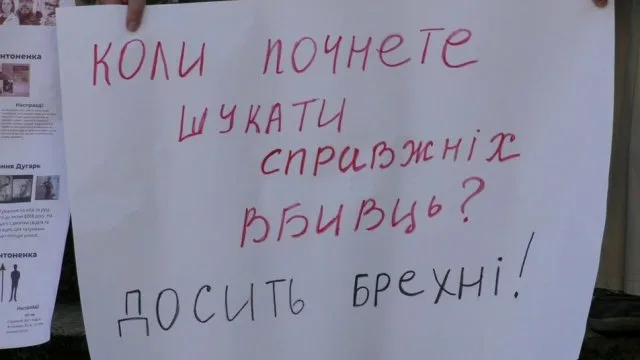 нтоненка
Насправді
ння Дугарь
нтоненка
Насправді
КОЛИ ПОЧНЕТЕ
ШУКАТИ
СПРАВЖНІХ
ВБИВЦЬ?
ДОСИТЬ БРЕХНІ!